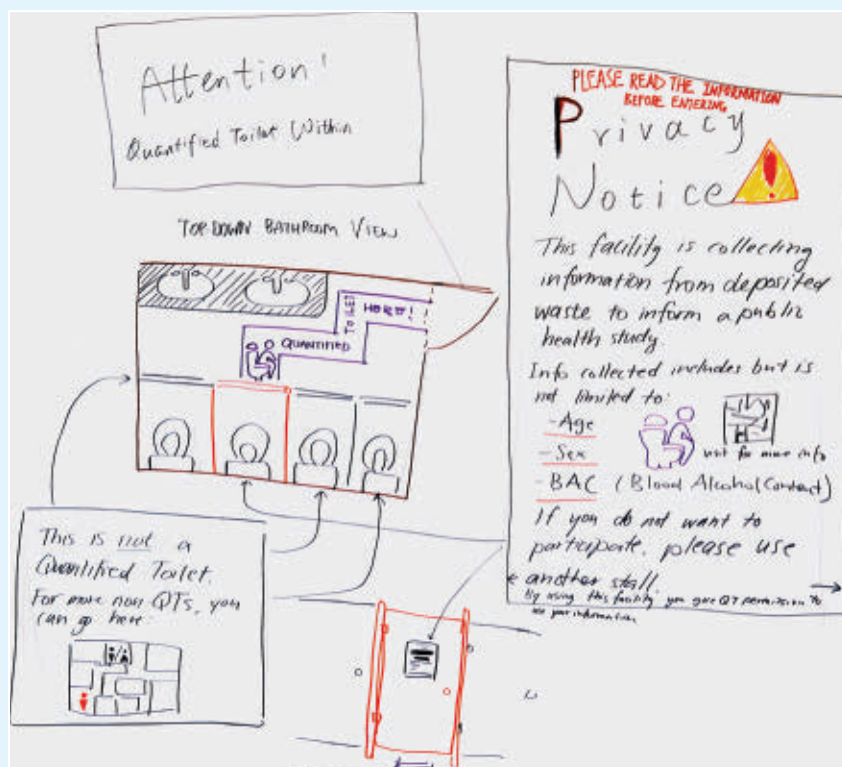 Attention!
Quantified Toilet Within
TOP-DOWN BATHROOM VIEW
TOILET
HERE!
QUANTIFIED
This is not a
Quantified Toilet.
For more non QTs, you
can go here:
PLEASE READ THE INFORMATION
BEFORE ENTERING
Privacy
Notice
This facility is collecting
information from deposited
waste to inform a public
health study.
Info collected includes but is
not limited to:
- Age
- Sex
visit for more info
- BAC (Blood Alcohol Content)
If you do not want to
participate, please use
another stall.
By using this facility you give QT permission to
use your information